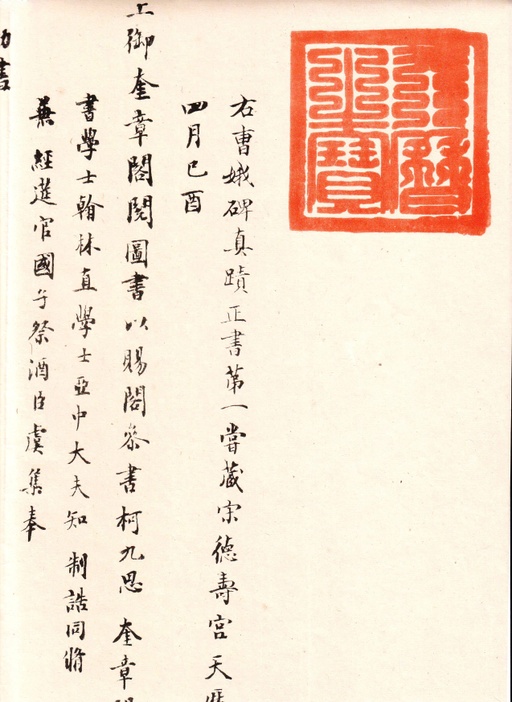 天曆之寶
右曹娥碑真蹟正書第一嘗藏宋德壽宮天曆
四月己酉
上御奎章閣閱圖書以賜閣參書柯九思奎章閣
書學士翰林直學士亞中大夫知 制誥同脩
兼經筵官國子祭酒臣虞集奉
書